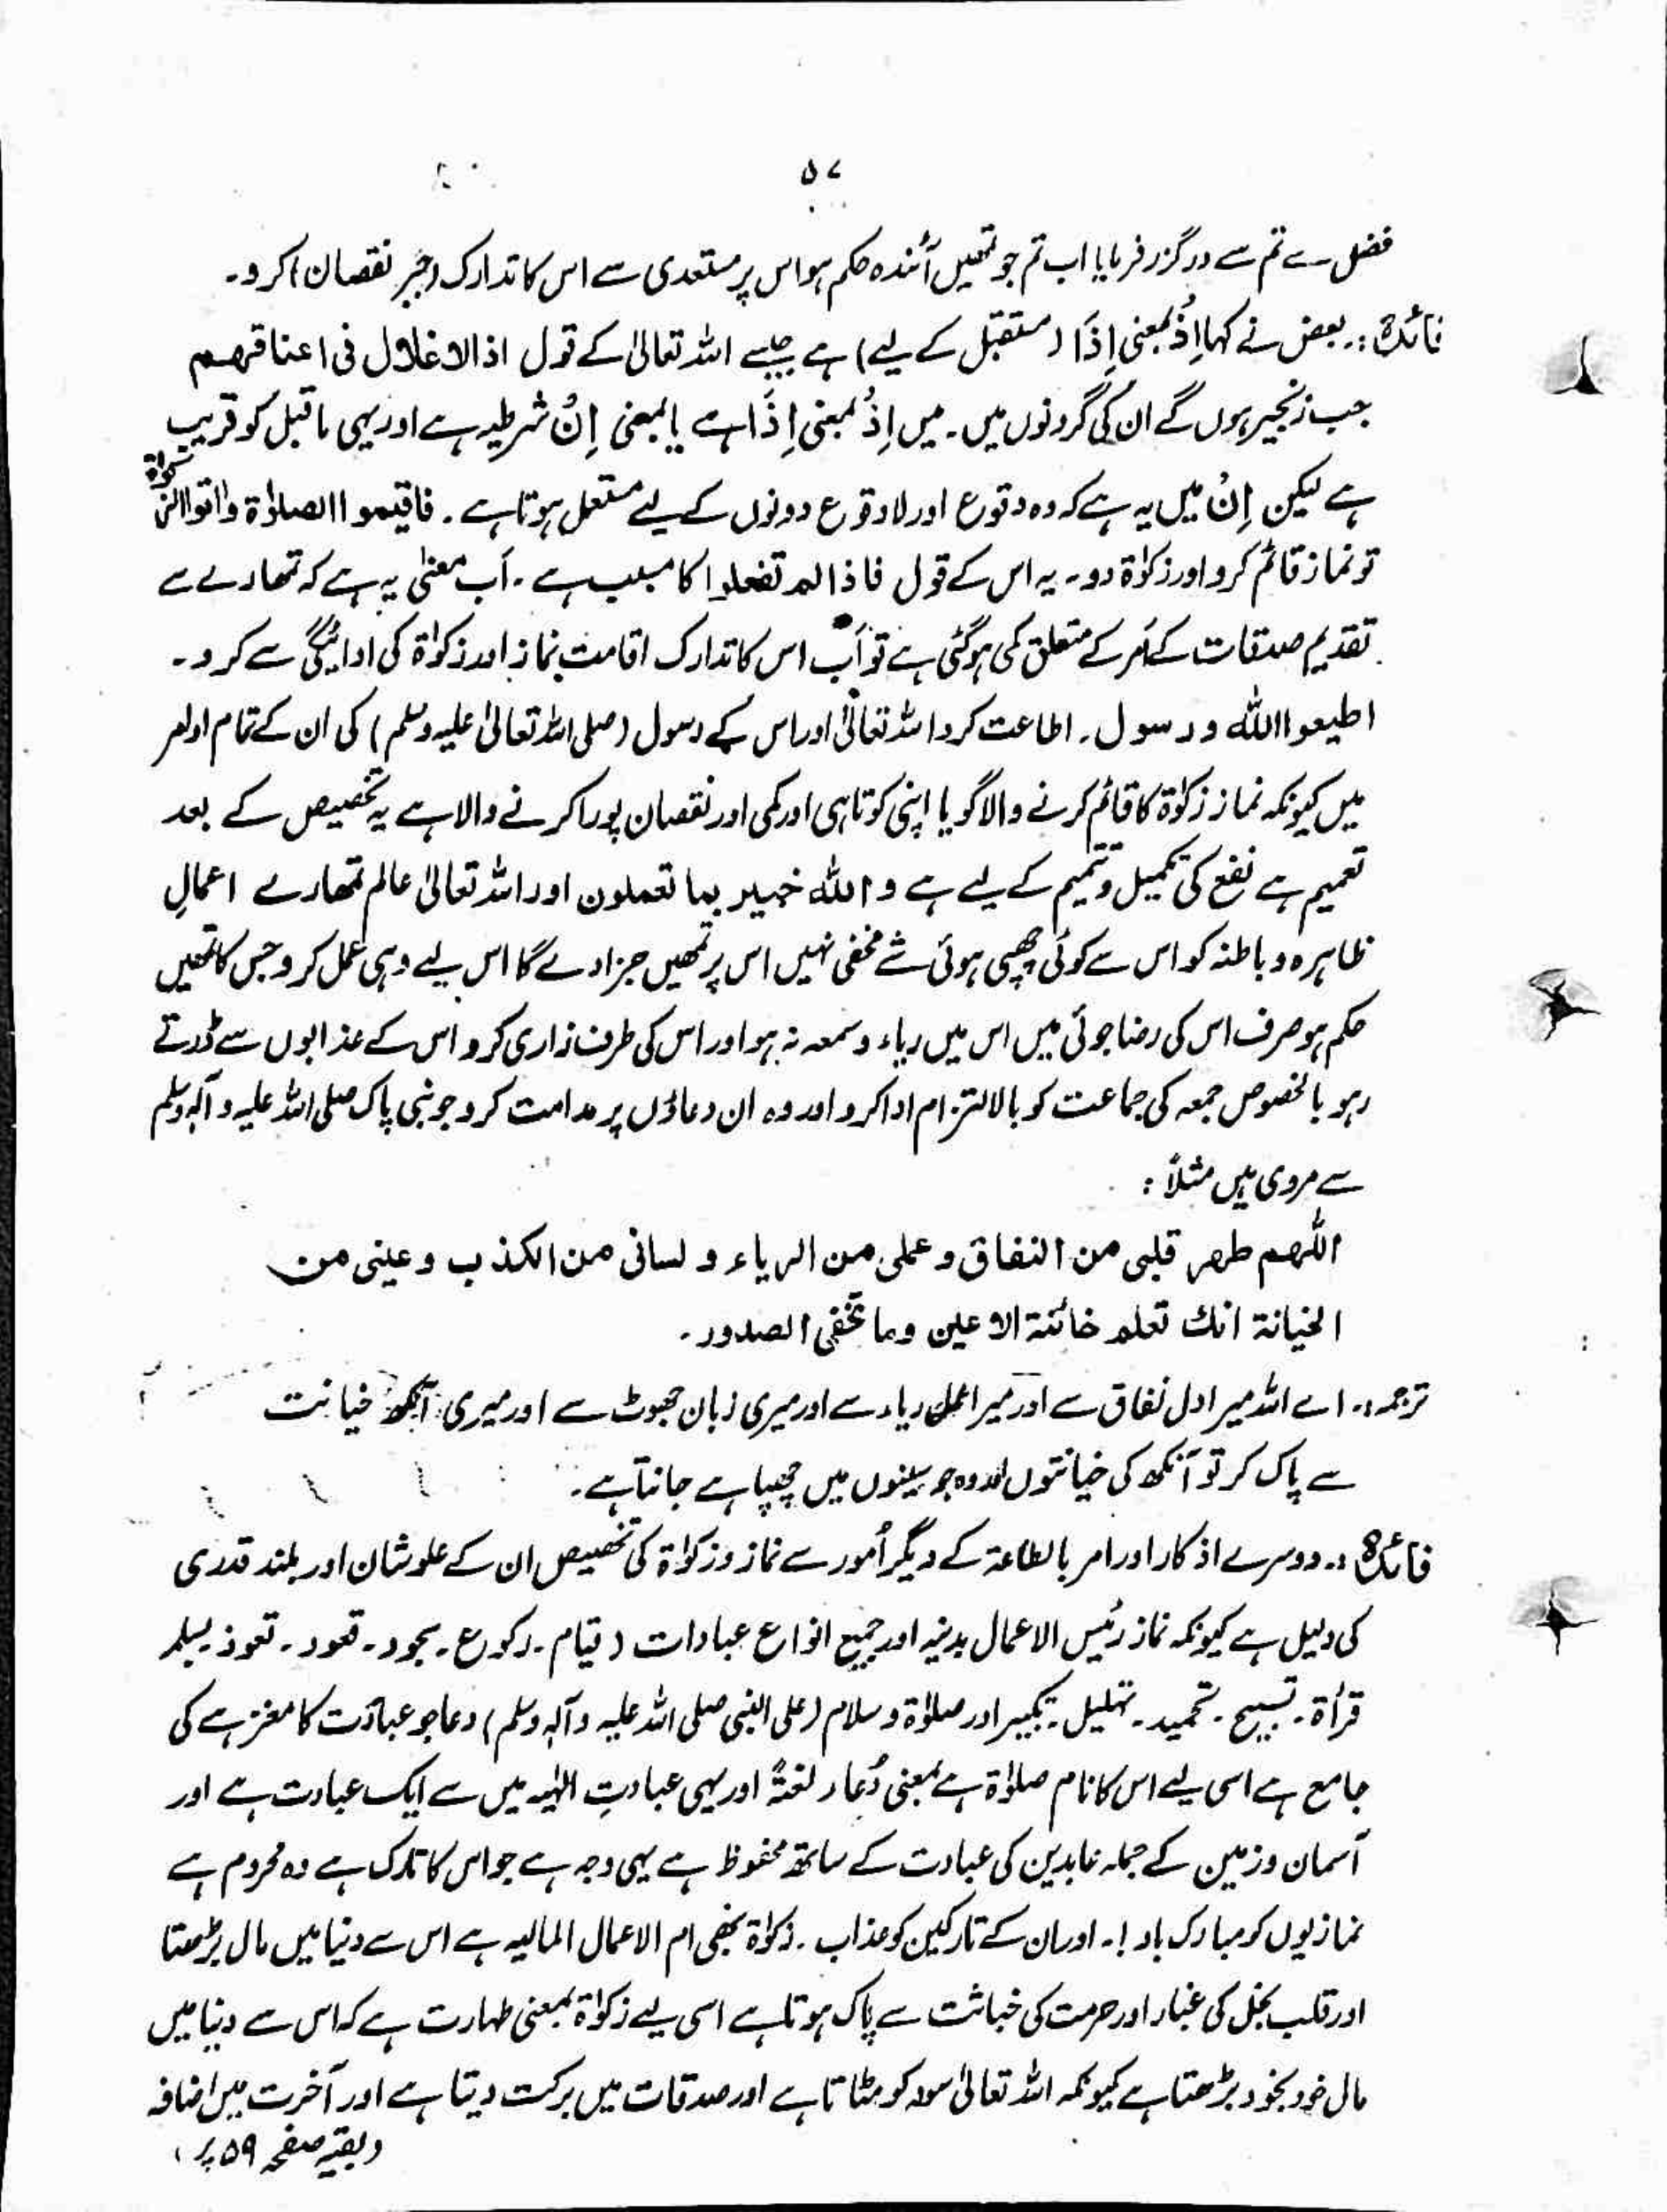 ۵۷
فضل سے تم سے درگزر فرمایا اب تم جو تمھیں آئندہ حکم ہو اس پر مستعدی سے اس کا تدارک (جبر نقصان) کرو۔
فائدہ:۔ بعض نے کہا اِذْ بمعنی اِذَا (مستقبل کے لیے) ہے جیسے اللہ تعالیٰ کے قول اذ الاغلال فی اعناقھم
جب زنجیر ہوں گے ان کی گردنوں میں۔ میں اِذْ بمعنی اِذَا ہے یا بمعنی اِنْ شرطیہ ہے اور یہی ماقبل کو قریب
ہے لیکن اِنْ میں یہ ہے کہ وہ وقوع اور لاوقوع دونوں کے لیے مستعمل ہوتا ہے۔ فاقیموا الصلوٰۃ واٰتوا الزکوٰۃ
تو نماز قائم کرو اور زکوٰۃ دو۔ یہ اس کے قول فاذ الم تفعلوا کا مسبب ہے۔ اَب معنیٰ یہ ہے کہ تمھارے سے
تقدیم صدقات کے اَمر کے متعلق کمی ہوگئی ہے تو اَب اس کا تدارک اقامت نماز اور زکوٰۃ کی ادائیگی سے کرو۔
اطیعوا اللہ و رسول۔ اطاعت کرو اللہ تعالیٰ اور اس کے رسول (صلی اللہ تعالیٰ علیہ وسلم) کی ان کے تمام اوامر
میں کیونکہ نماز زکوٰۃ کا قائم کرنے والا گویا اپنی کوتاہی اور کمی اور نقصان پورا کرنے والا ہے یہ تخصیص کے بعد
تعمیم ہے نفع کی تکمیل و تتمیم کے لیے ہے واللہ خبیر بما تعملون اور اللہ تعالیٰ عالم تمھارے اعمالِ
ظاہرہ و باطنہ کو اس سے کوئی چھپی ہوئی شے مخفی نہیں اس پر تمھیں جزا دے گا اس لیے وہی عمل کرو جس کا تمھیں
حکم ہو صرف اس کی رضا جوئی میں اس میں ریاء و سمعہ نہ ہو اور اس کی طرف زاری کرو اس کے عذابوں سے ڈرتے
رہو بالخصوص جمعہ کی جماعت کو بالالتزام ادا کرو اور وہ ان دعاؤں پر مدامت کرو جو نبی پاک صلی اللہ علیہ وآلہ وسلم
سے مروی ہیں مثلاً:
اللّٰھم طھر قلبی من النفاق و عملی من الریاء و لسانی من الکذب و عینی من
الخیانۃ انک تعلم خائنۃ الاعین وما تخفی الصدور۔
ترجمہ:۔ اے اللہ میرا دل نفاق سے اور میرا عمل ریاء سے اور میری زبان جھوٹ سے اور میری آنکھ خیانت
سے پاک کر تو آنکھ کی خیانتوں اور وہ جو سینوں میں چھپا ہے جانتا ہے۔
فائدہ:۔ دوسرے اذکار اور امر بالطاعۃ کے دیگر اُمور سے نماز و زکوٰۃ کی تخصیص ان کے علو شان اور بلند قدری
کی دلیل ہے کیونکہ نماز رئیس الاعمال بدنیہ اور جمیع انواع عبادات (قیام۔ رکوع۔ سجود۔ قعود۔ تعوذ۔ بسملہ
قرأۃ۔ تسبیح۔ تحمید۔ تہلیل۔ تکبیر اور صلوٰۃ و سلام (علی النبی صلی اللہ علیہ وآلہ وسلم) دعا جو عبادت کا مغز ہے کی
جامع ہے اسی لیے اس کا نام صلوٰۃ ہے بمعنی دُعاء لغۃً اور یہی عبادتِ الٰہیہ میں سے ایک عبادت ہے اور
آسمان و زمین کے جملہ عابدین کی عبادت کے ساتھ محفوظ ہے یہی وجہ ہے جو اس کا تارک ہے وہ محروم ہے
نمازیوں کو مبارک باد!۔ اور ان کے تارکین کو عذاب۔ زکوٰۃ بھی ام الاعمال المالیہ ہے اس سے دنیا میں مال بڑھتا
اور قلب بخل کی غبار اور حرمت کی خباثت سے پاک ہوتا ہے اسی لیے زکوٰۃ بمعنی طہارت ہے کہ اس سے دنیا میں
مال خود بخود بڑھتا ہے کیونکہ اللہ تعالیٰ سود کو مٹاتا ہے اور صدقات میں برکت دیتا ہے اور آخرت میں اضافہ
(بقیہ صفحہ ۵۹ پر)